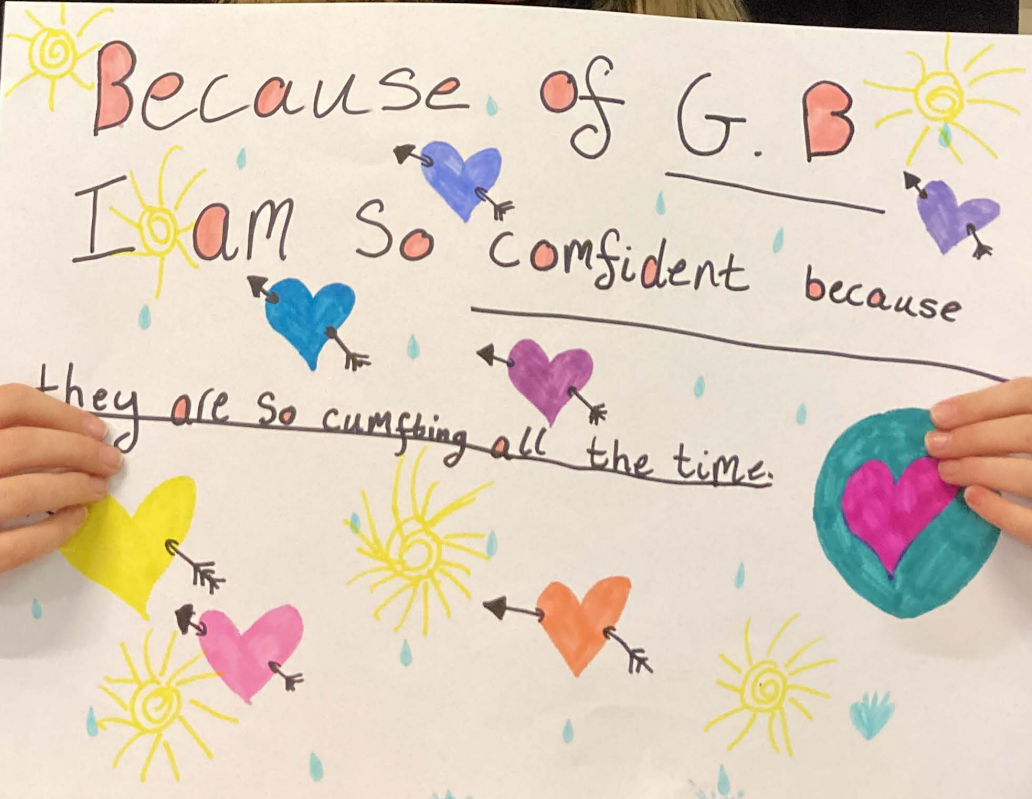 Because of G. B
I am so comfident because
they are so cumfting all the time.